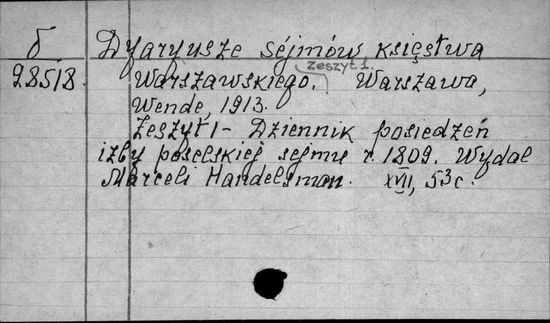 б
28518.
Dyaryusze séjmów księstwa
zeszyt 1.
Warszawskiego. Warszawa,
Wende, 1913.
Zeszyt 1 - Dziennik posiedzeń
izby poselskiej sejmu r. 1809. Wydal
Marceli Handelsman. XVII, 53 c.